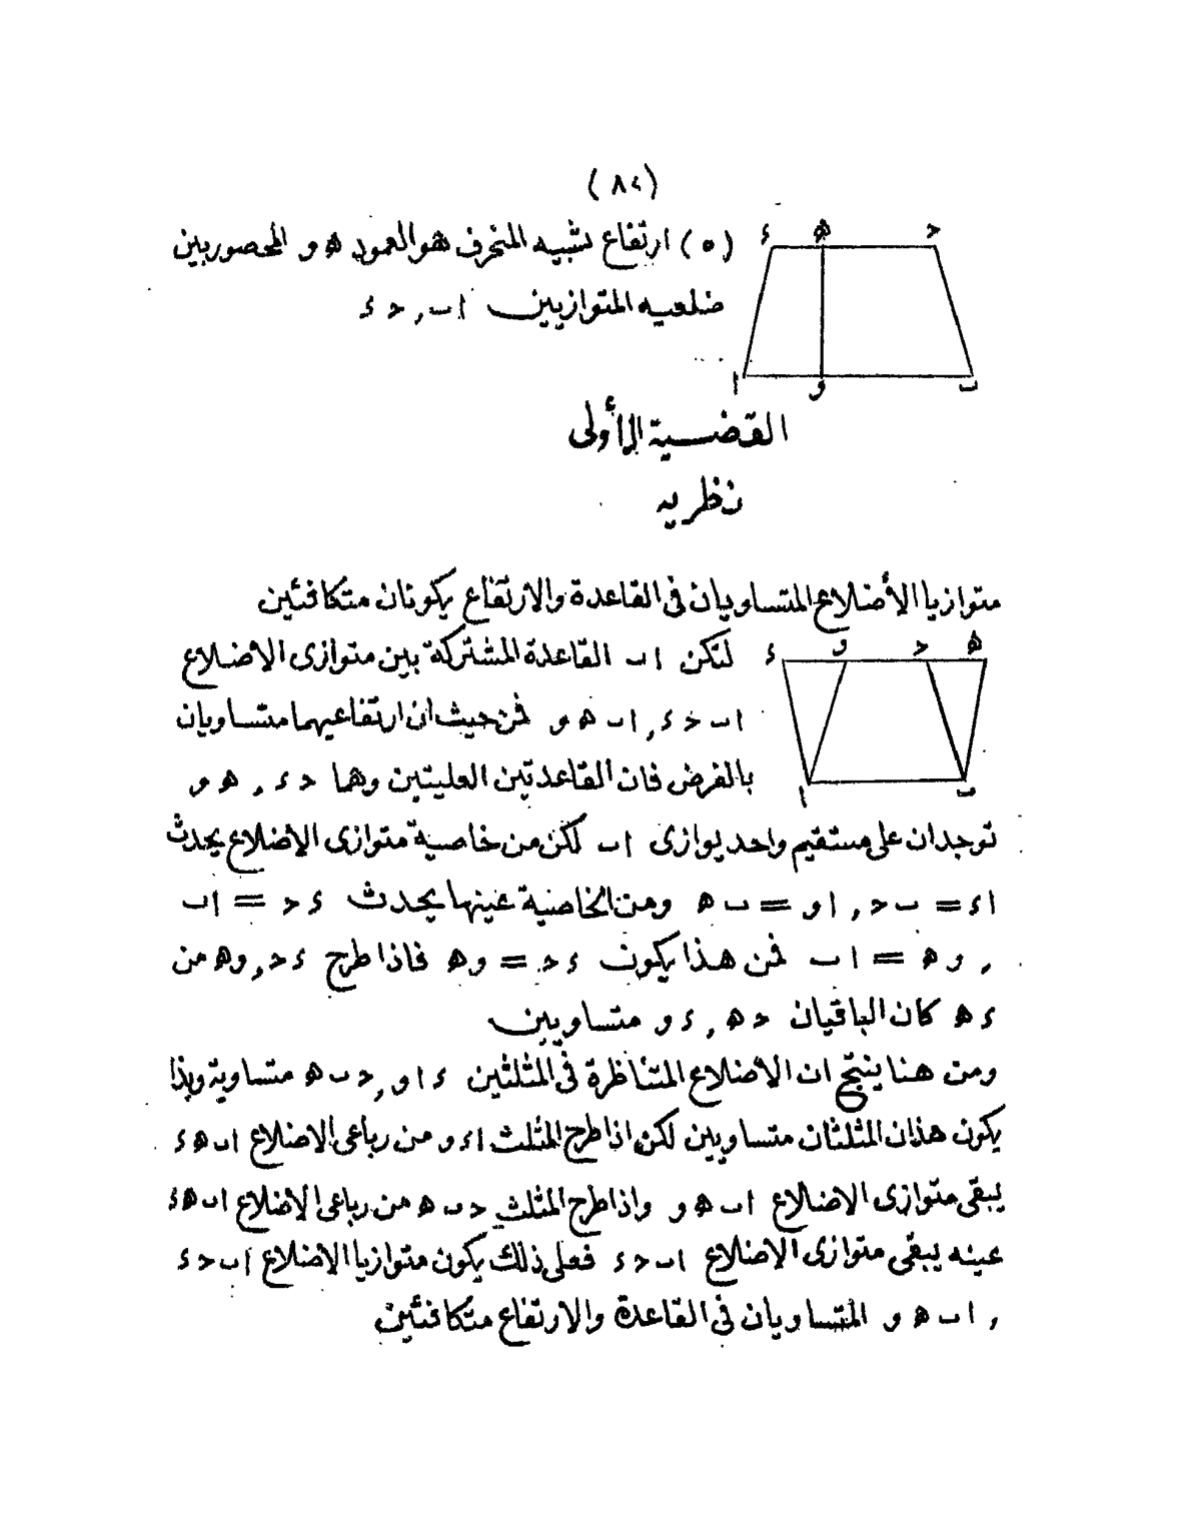 (٨٢)
(٥) ارتفاع شبيه المنحرف هو العمود ه و المحصور بين
ضلعيه المتوازيين ا ب , ح د
د ه ح
ا و ب
القضية الأولى
نظريه
متوازيا الأضلاع المتساويان فى القاعدة والارتفاع يكونان متكافئين
د و ح ه
ا ب
لتكن ا ب القاعدة المشتركة بين متوازى الاضلاع
ا ب ح د , ا ب ه و فمن حيث ان ارتفاعيهما متساويان
بالفرض فان القاعدتين العليتين وهما ح د , ه و
توجدان على مستقيم واحد يوازى ا ب لكن من خاصية متوازى الاضلاع يحدث
ا د = ب ح , ا و = ب ه ومن الخاصية عينها يحدث د ح = ا ب
, و ه = ا ب فمن هذا يكون د ح = و ه فاذا طرح د ح , و ه من
د ه كان الباقيان ح ه , د و متساويين
ومن هنا ينتج ان الأضلاع المتناظرة فى المثلثين د ا و , ح ب ه متساوية وبذا
يكون هذان المثلثان متساويين لكن اذا طرح المثلث ا د و من رباعى الاضلاع ا ب ه د
يبقى متوازى الاضلاع ا ب ه و واذا طرح المثلث ح ب ه من رباعى الأضلاع ا ب ه د
عينه يبقى متوازى الاضلاع ا ب ح د فعلى ذلك يكون متوازيا الاضلاع ا ب ح د
, ا ب ه و المتساويان فى القاعدة والارتفاع متكافئين